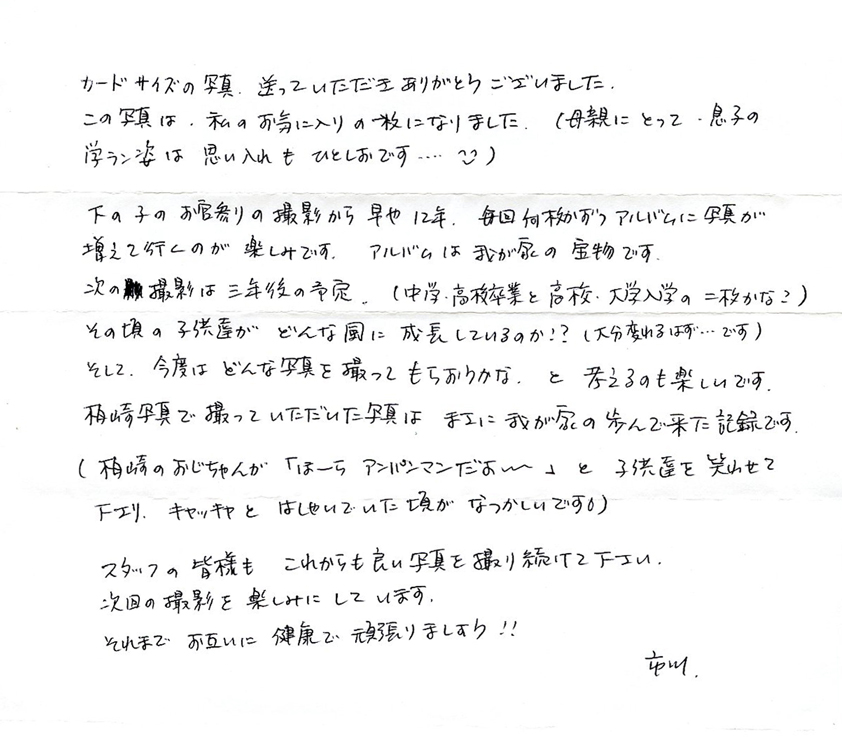 カードサイズの写真、送っていただきありがとうございました。
この写真は、私のお気に入りの一枚になりました。(母親にとって、息子の
学ラン姿は思い入れもひとしおです….)
下の子のお宮参りの撮影から早や12年、毎回何枚かずつアルバムに写真が
増えて行くのが楽しみです。アルバムは我が家の宝物です。
次の撮影は三年後の予定。(中学・高校卒業と高校・大学入学の二枚かな?)
その頃の子供達がどんな風に成長しているのか!?(大分変わるはず…です)
そして、今度はどんな写真を撮ってもらおうかな、と考えるのも楽しいです。
柏崎写真で撮っていただいた写真は まさに我が家の歩んで来た記録です。
(柏崎のおじちゃんが「ほーら アンパンマンだよ〜〜」と子供達を笑わせて
下さり、キャッキャとはしゃいでいた頃がなつかしいです)
スタッフの皆様も これからも良い写真を撮り続けて下さい。
次回の撮影を楽しみにしています。
それまでお互いに健康で頑張りましょう!!
市川.